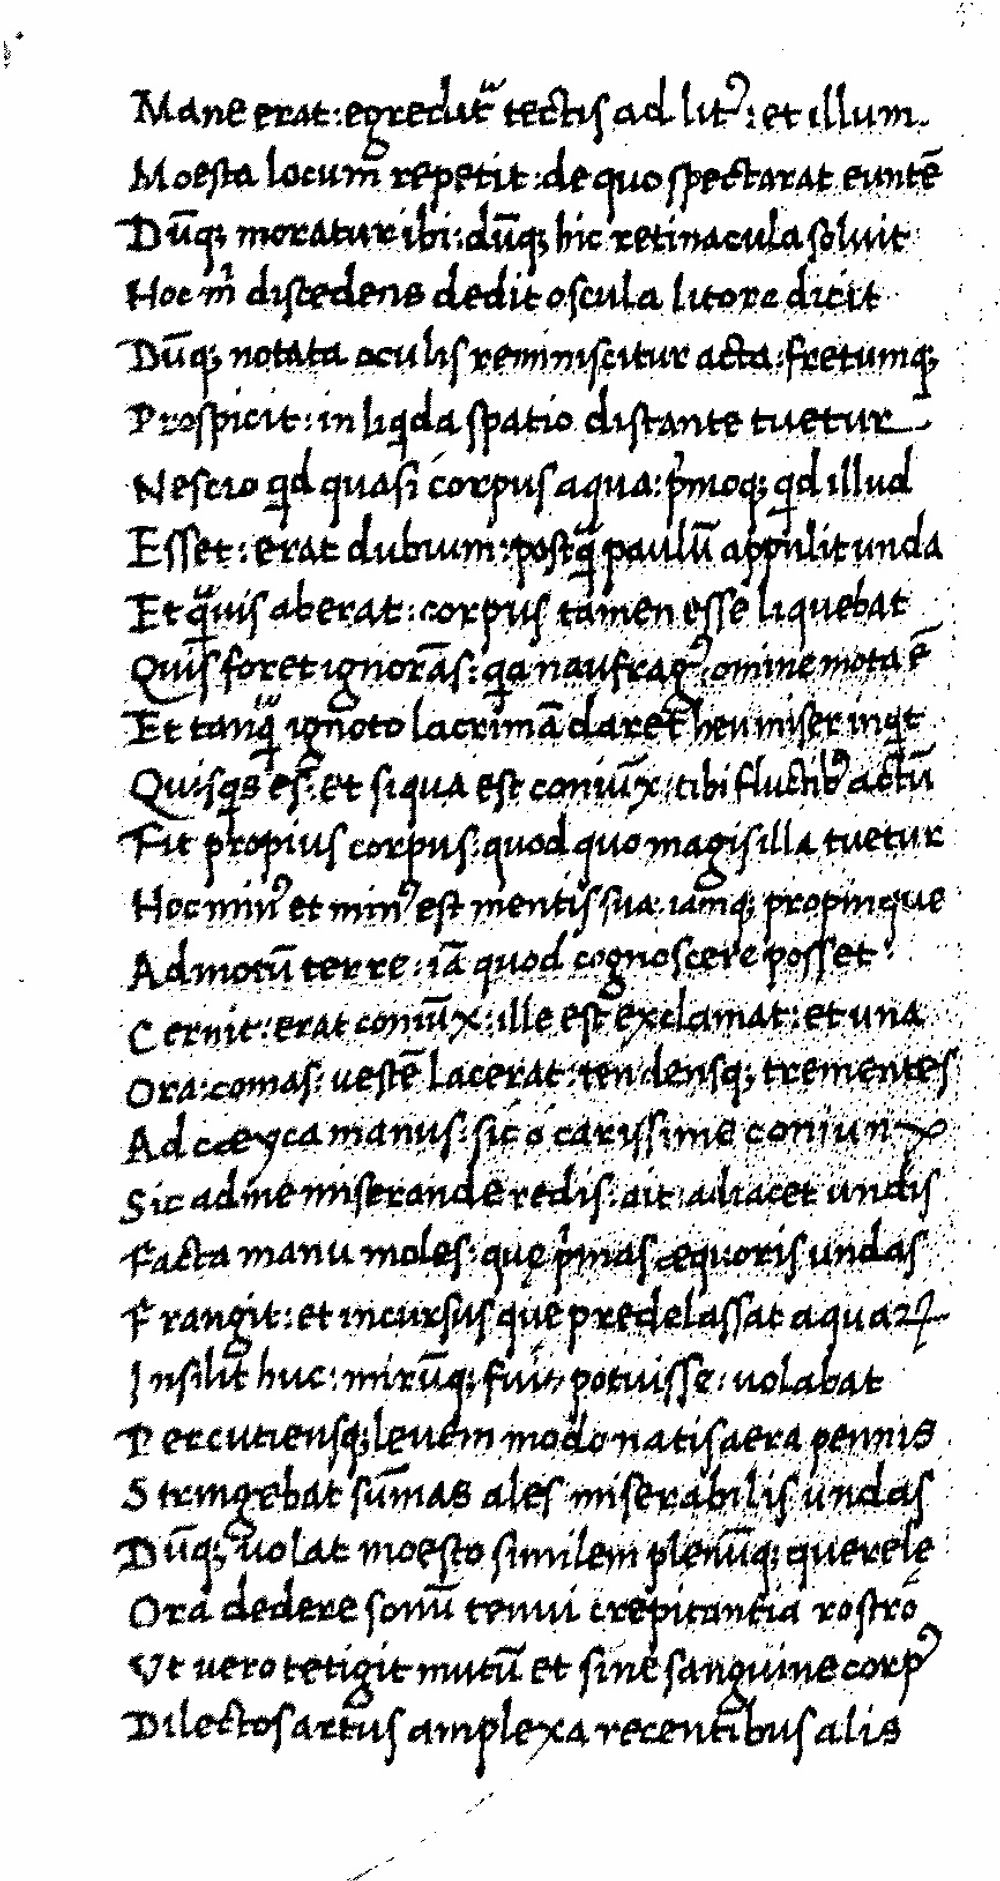 Mane erat: egredit᷒ tectis ad lit᷒: et illum
Moesta locum repetit: de quo spectarat euntē
Dūq; moratur ibi: dūq; hic retinacula soluit
Hoc m̄ discedens dedit oscula litore dicit
Dūq; notata oculis reminiscitur acta: fretumq;
Prospicit: in liqda spatio distante tuetur
Nescio qd quasi corpus aqua: pͥmoq; qd illud
Esset: erat dubium: postq̃ paulū appulit unda
Et q̃uis aberat: corpus tamen esse liquebat
Quis foret ignorās: qa naufrag᷒ omine mota ē
Et tanq̃ ignoto lacrimā daret heu miser inqt
Quisqs es: et siqua est coniūx: tibi fluctib᷒ actū
Fit propius corpus: quod quo magis illa tuetur
Hoc min᷒ et min᷒ est mentis sua: iamq; propinque
Admotū terre: iā quod cognoscere posset
Cernit: erat coniūx: ille est exclamat: et una
Ora: comas: uestē lacerat: tendensq; trementes
Ad cæyca manus: sic ó carissime coniunx
Sic ad me miserande redis: ait: adiacet undis
Facta manu moles: quę pͥmas æquoris undas
Frangit: et incursus que predelassat aquaꝝ
Insilit huc: mirūq; fuit potuisse: uolabat
Percutiensq; leuem modo natis aera pennis
Stringebat sūmas ales miserabilis undas
Dūq; uolat moesto similem plenūq; querele
Ora dedere sonū tenui crepitantia rostro
Vt uero tetigit mutū et sine sanguine corp᷒
Dilectos artus amplexa recentibus alis